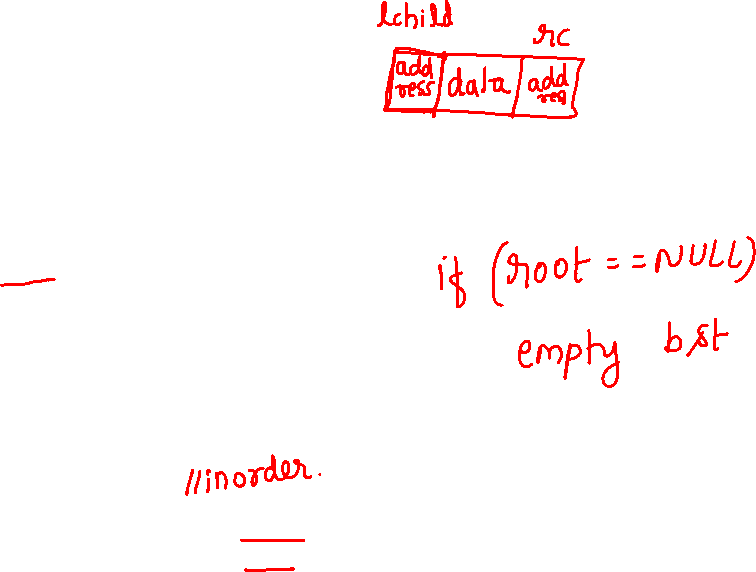 lchild
rc
add ress data add res
if (root == NULL)
empty bst
//inorder.